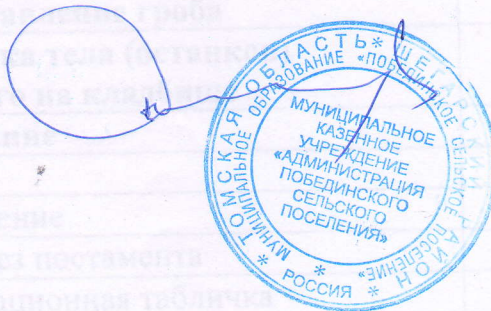 гроба
тела (останков
на кладбище
ение
постамента
ационная табличка
* ТОМСКАЯ ОБЛАСТЬ * ШЕГАРСКИЙ РАЙОН * РОССИЯ
* МУНИЦИПАЛЬНОЕ ОБРАЗОВАНИЕ «ПОБЕДИНСКОЕ СЕЛЬСКОЕ ПОСЕЛЕНИЕ»
МУНИЦИПАЛЬНОЕ
КАЗЕННОЕ
УЧРЕЖДЕНИЕ
«АДМИНИСТРАЦИЯ
ПОБЕДИНСКОГО
СЕЛЬСКОГО
ПОСЕЛЕНИЯ»